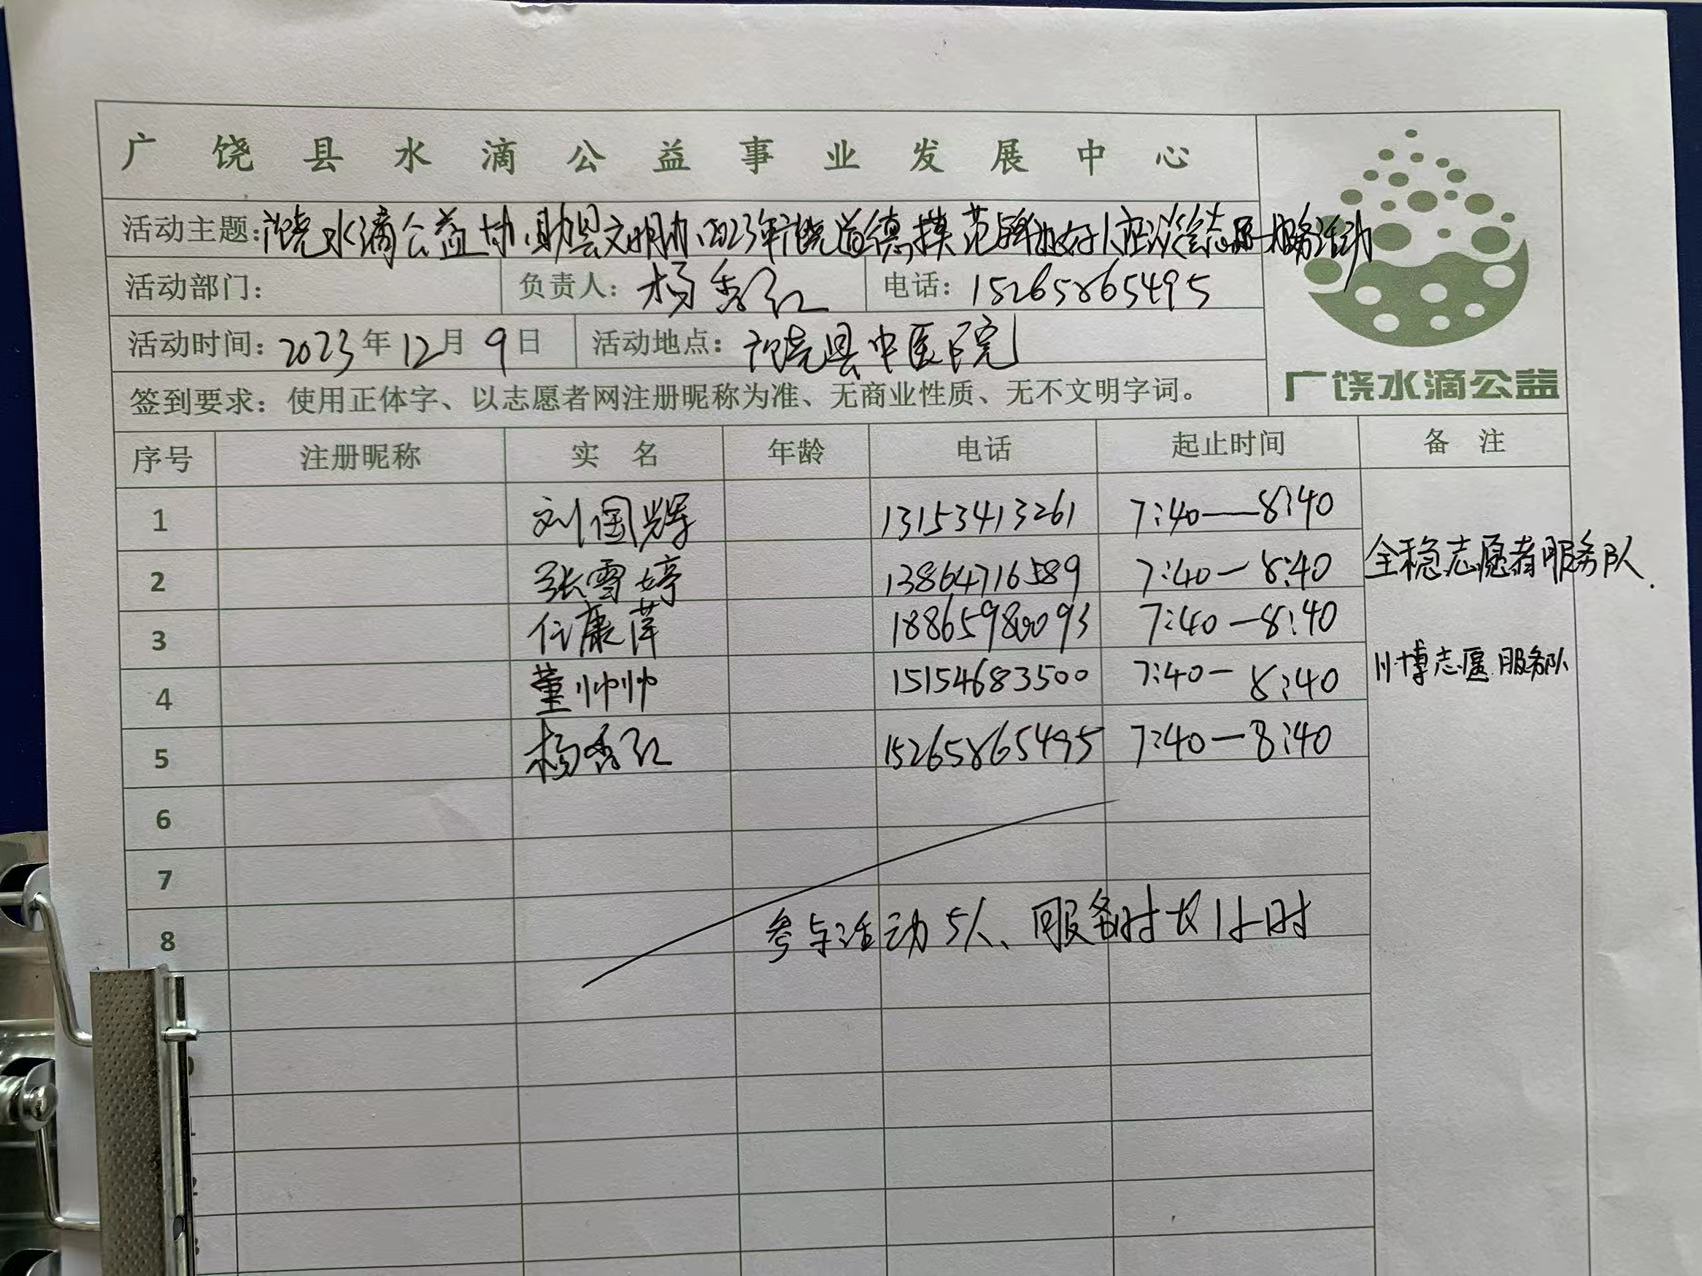 广饶县水滴公益事业发展中心
活动主题:广饶水滴公益协助县文明办、2023年广饶道德模范 志愿服务活动
活动部门: 负责人: 杨秀红 电话: 15265865495
活动时间: 2023年12月9日 活动地点: 广饶县中医院
签到要求: 使用正体字、以志愿者网注册昵称为准、无商业性质、无不文明字词。
广饶水滴公益
序号 注册昵称 实 名 年龄 电话 起止时间 备 注
1 刘国辉 13153413261 7:40—8:40
2 张雪婷 13864716589 7:40—8:40 全稳志愿者服务队.
3 任康萍 18865980093 7:40—8:40
4 董帅帅 15154683500 7:40—8:40 川博志愿服务队
5 杨秀红 15265865495 7:40—8:40
6
7
8 参与活动5人、服务时长1小时